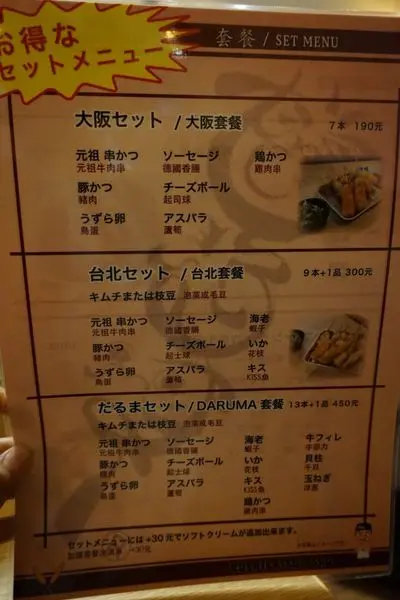 お得な
セットメニュー
套餐 / SET MENU
大阪セット / 大阪套餐 7本 190元
元祖 串かつ ソーセージ 鶏かつ
元祖牛肉串 德國香腸 雞肉串
豚かつ チーズボール
豬肉 起司球
うずら卵 アスパラ
鳥蛋 蘆筍
台北セット / 台北套餐 9本+1品 300元
キムチまたは枝豆 泡菜或毛豆
元祖 串かつ ソーセージ 海老
元祖牛肉串 德國香腸 蝦子
豚かつ チーズボール いか
豬肉 起士球 花枝
うずら卵 アスパラ キス
鳥蛋 蘆筍 KISS魚
だるまセット / DARUMA 套餐 13本+1品 450元
キムチまたは枝豆 泡菜或毛豆
元祖 串かつ ソーセージ 海老 牛フィレ
元祖牛肉串 德國香腸 蝦子 牛菲力
豚かつ チーズボール いか 貝柱
豬肉 起士球 花枝 干貝
うずら卵 アスパラ キス 玉ねぎ
鳥蛋 蘆筍 KISS魚 洋蔥
鶏かつ
雞肉串
セットメニューには+30元でソフトクリームが追加出来ます。